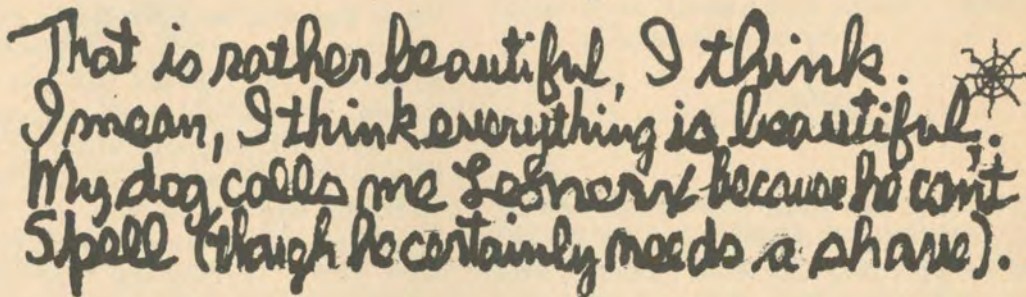 That is rather beautiful, I think.
I mean, I think everything is beautiful.
My dog calls me because he can't
Spell (though he certainly needs a shave).